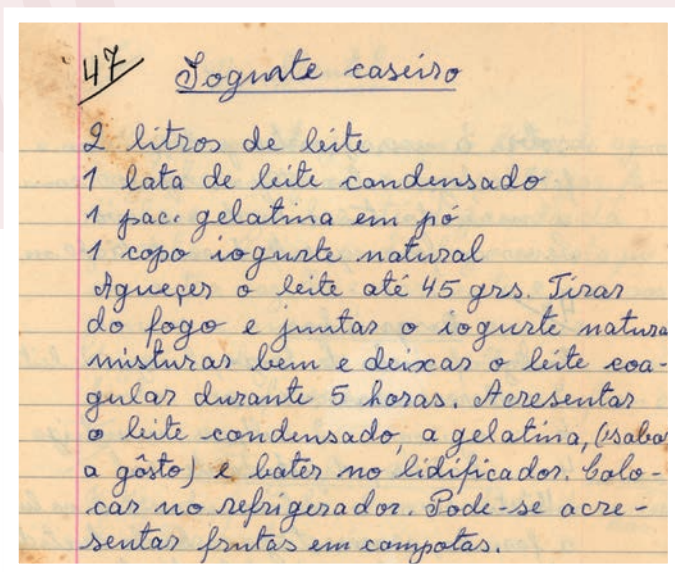 47 Iogurte caseiro
2 litros de leite
1 lata de leite condensado
1 pac. gelatina em pó
1 copo iogurte natural
Agueçer o leite até 45 grs. Tirar
do fogo e juntar o iogurte natura
misturar bem e deixar o leite coa-
gular durante 5 horas. Acresentar
o leite condensado, a gelatina, (sabor
a gôsto) e bater no lidificador. Colo-
car no refrigerador. Pode-se acre-
sentar frutas em compotas.